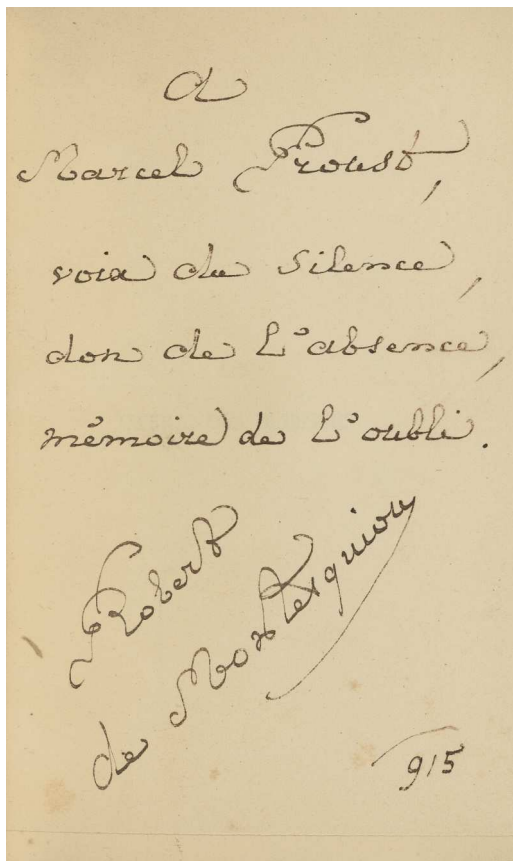 A
Marcel Proust,
voix du silence,
don de l'absence,
mémoire de l'oubli.
Robert
de Montesquiou
915